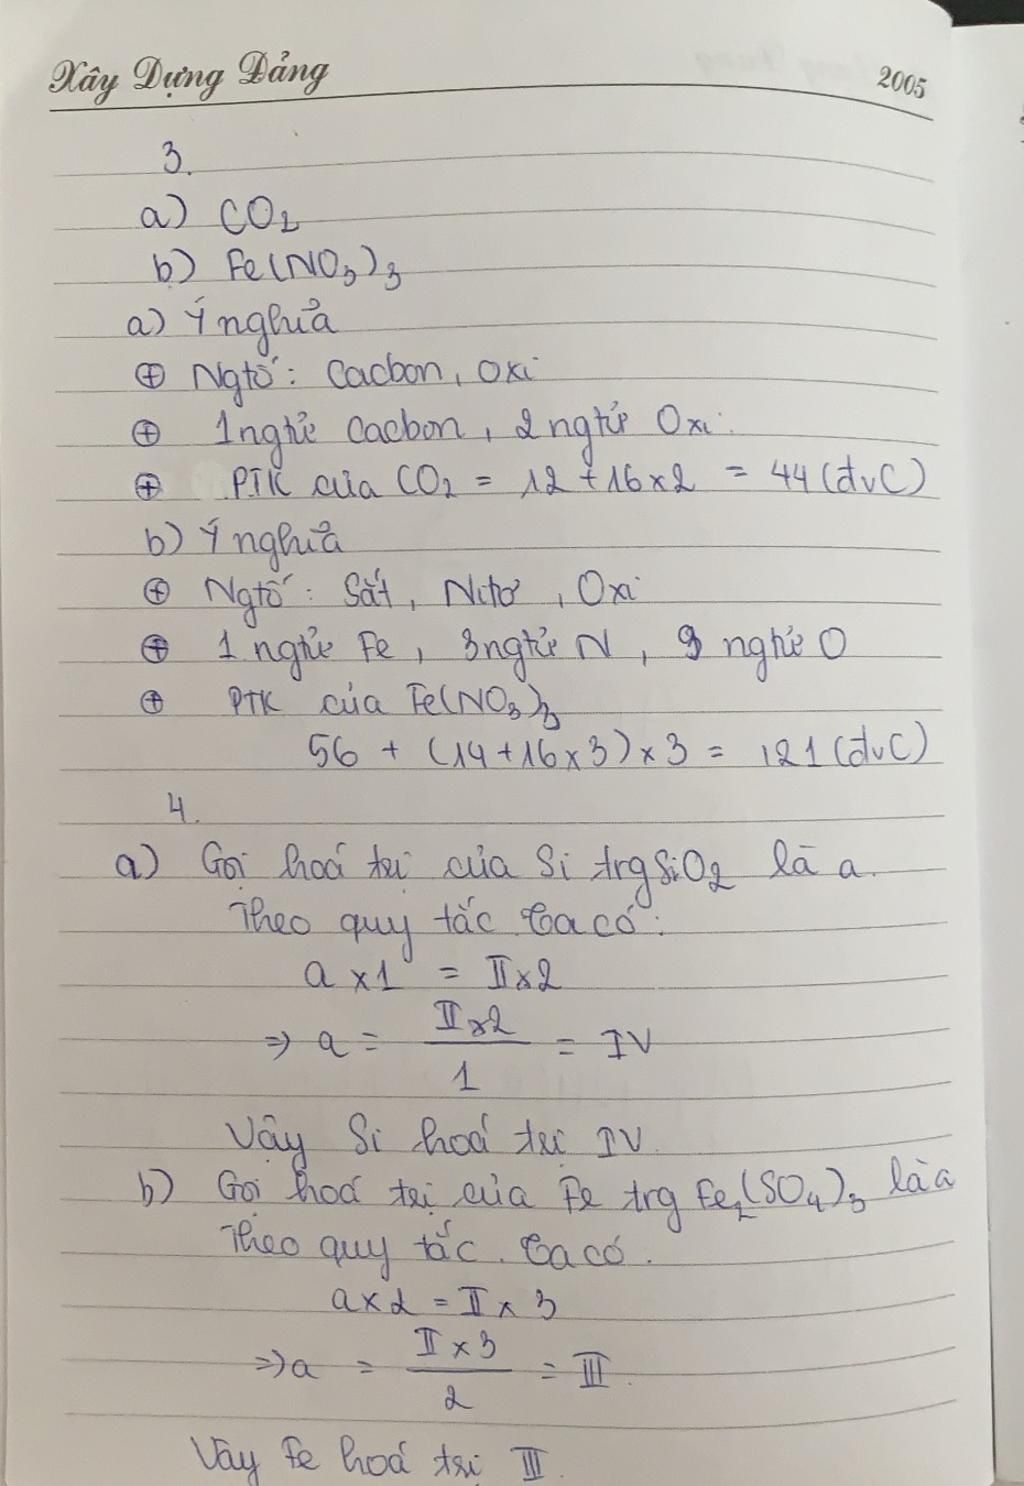 Xây Dựng Đảng 2005
3.
a) CO2
b) Fe(NO3)3
a) Ý nghĩa
⊕ Ngtố: Cacbon, Oxi
⊕ 1 ngtử Cacbon, 2 ngtử Oxi.
⊕ PTK của CO2 = 12 + 16 x 2 = 44 (đvC)
b) Ý nghĩa
⊕ Ngtố: Sắt, Nitơ, Oxi
⊕ 1 ngtử Fe, 3 ngtử N, 9 ngtử O
⊕ PTK của Fe(NO3)3
56 + (14 + 16 x 3) x 3 = 121 (đvC)
4.
a) Gọi hoá trị của Si trg SiO2 là a.
Theo quy tắc ta có:
a x 1 = II x 2
=> a = II x 2 / 1 = IV
Vậy Si hoá trị IV.
b) Gọi hoá trị của Fe trg Fe2(SO4)3 là a
Theo quy tắc. ta có.
a x 2 = II x 3
=> a = II x 3 / 2 = III.
Vậy Fe hoá trị III.